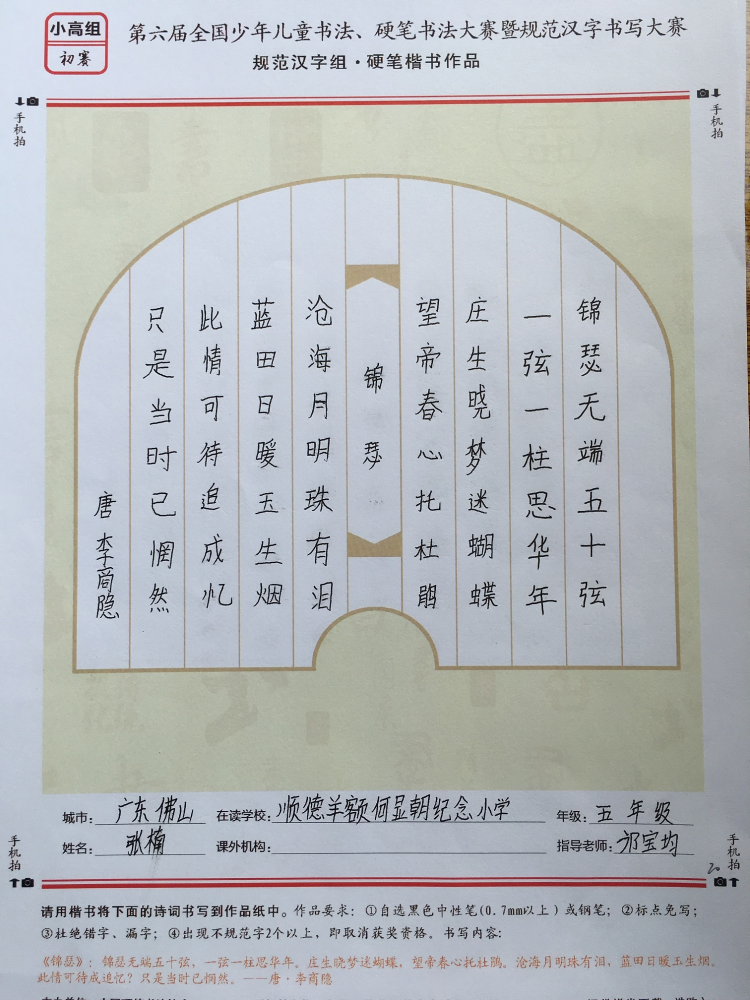 小高组
初赛
第六届全国少年儿童书法、硬笔书法大赛暨规范汉字书写大赛
规范汉字组·硬笔楷书作品
手机拍
手机拍
锦瑟无端五十弦
一弦一柱思华年
庄生晓梦迷蝴蝶
望帝春心托杜鹃
锦瑟
沧海月明珠有泪
蓝田日暖玉生烟
此情可待追成忆
只是当时已惘然
唐 李商隐
城市：广东佛山 在读学校：顺德羊额何显朝纪念小学 年级：五年级
姓名：张楠 课外机构： 指导老师：邝宝均
手机拍
手机拍
请用楷书将下面的诗词书写到作品纸中。作品要求：①自选黑色中性笔(0.7mm以上）或钢笔；②标点免写；
③杜绝错字、漏字；④出现不规范字2个以上，即取消获奖资格。书写内容：
《锦瑟》：锦瑟无端五十弦，一弦一柱思华年。庄生晓梦迷蝴蝶，望帝春心托杜鹃。沧海月明珠有泪，蓝田日暖玉生烟。
此情可待成追忆？只是当时已惘然。——唐·李商隐